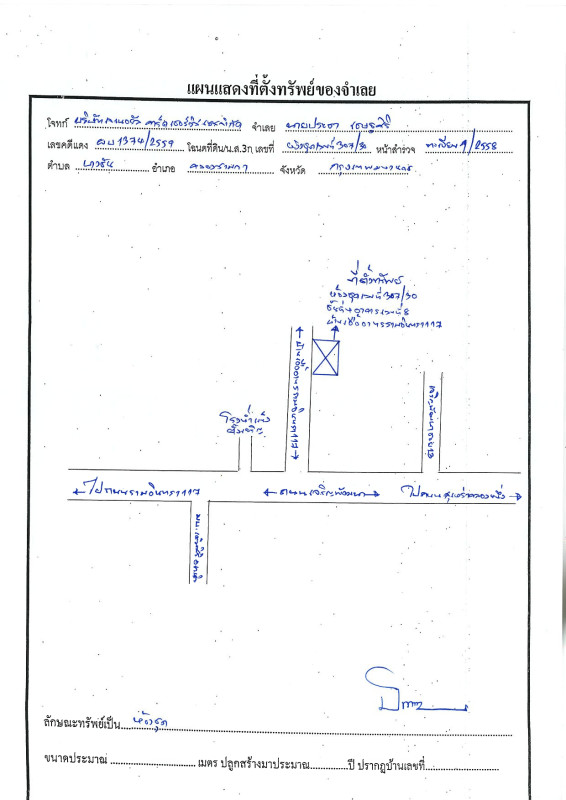 แผนแสดงที่ตั้งทรัพย์ของจำเลย
โจทก์ บริษัท จำเลย นายประดา
เลขคดีแดง ผบ 1374/2557 โฉนดที่ดิน/น.ส.3ก เลขที่ ห้องชุดเลขที่ 307/30 หน้าสำรวจ ทะเบียน 9/2558
ตำบล บางชัน อำเภอ คลองสามวา จังหวัด กรุงเทพมหานคร
ที่ตั้งทรัพย์
ห้องชุดเลขที่ 307/30
ชั้นที่ อาคารเลขที่ 8
บ้านเอื้ออาทรรามอินทรา 117
บ้านเอื้ออาทรรามอินทรา 117
โรงน้ำแข็ง
ไปถนนรามอินทรา 117
ถนนเจริญพัฒนา
ไปถนนสุเหร่าคลองหนึ่ง
ลักษณะทรัพย์เป็น ห้องชุด
ขนาดประมาณ เมตร ปลูกสร้างมาประมาณ ปี ปรากฏบ้านเลขที่